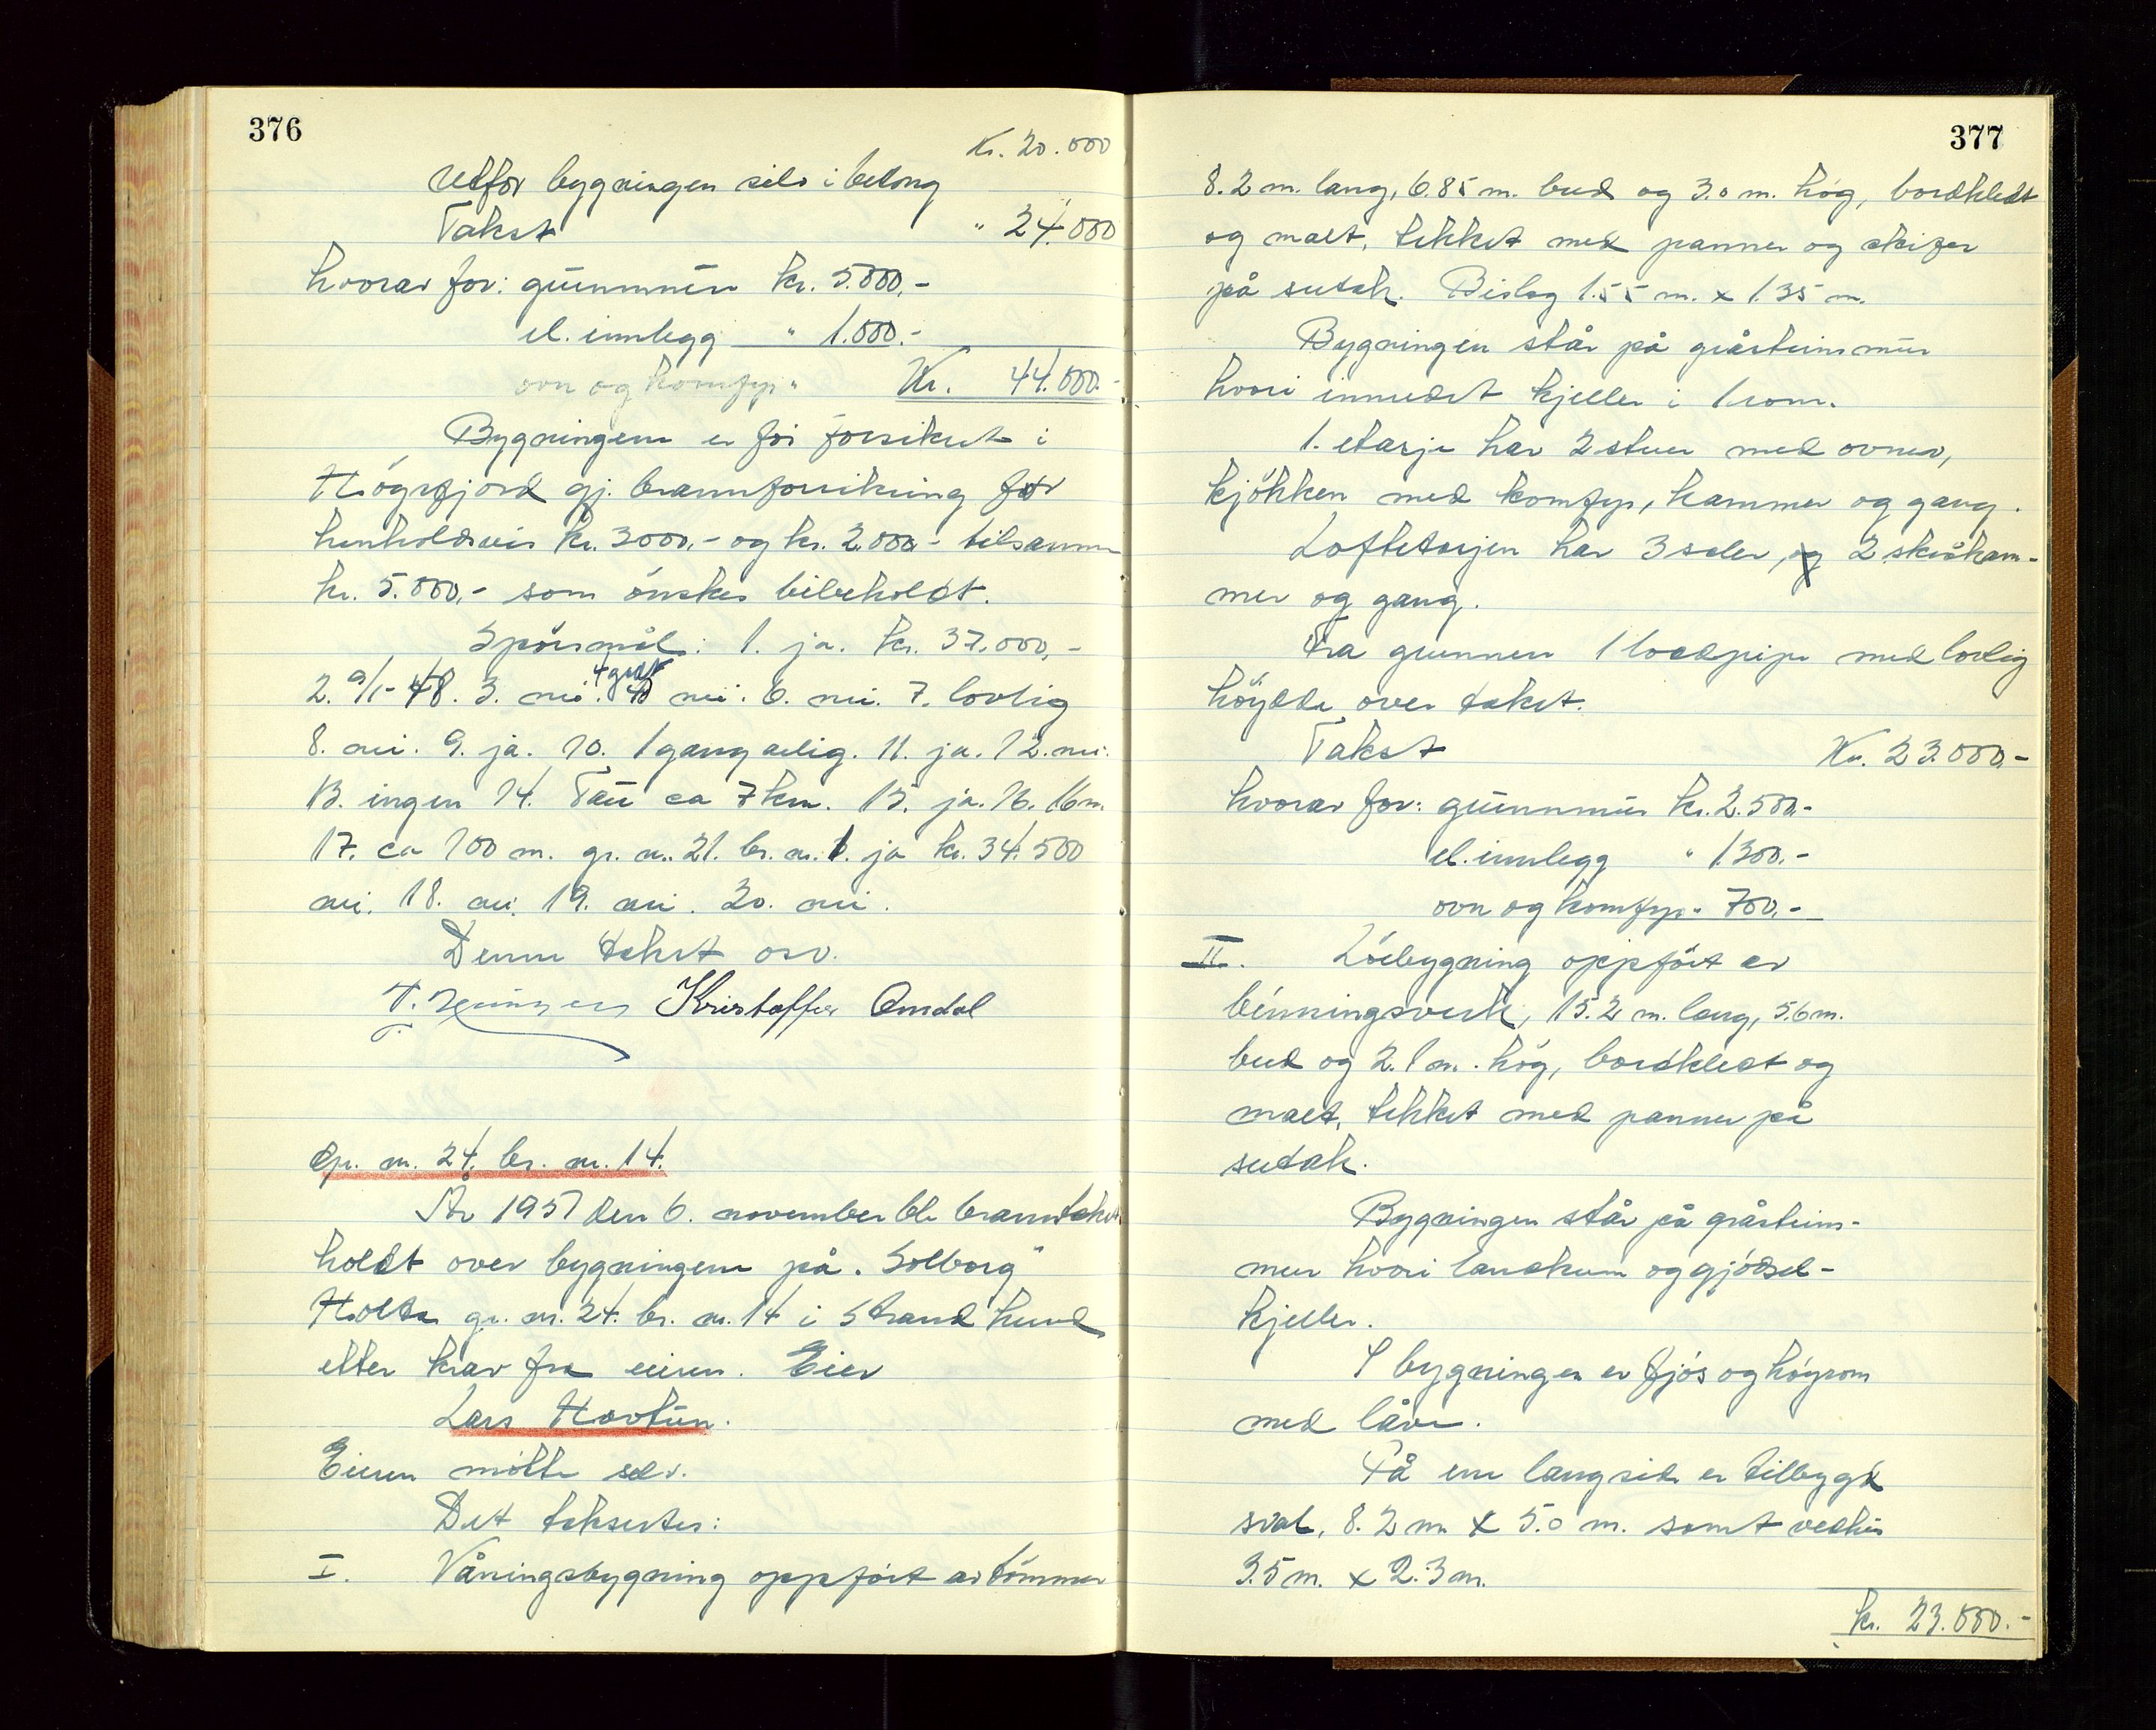 376
Kr. 20.000
Utfor bygningen silo i betong
Takst " 24.000
hvorav for: grunnmur kr. 5.000,-
el. innlegg " 1.000.-
ovn og komfyr " Kr. 44.000.-
Bygningene er før forsikret i
Høgsfjord gj. brannforsikring for
henholdsvis kr. 3000,- og kr. 2.000,- tilsammen
kr. 5.000,- som ønskes bibeholdt.
Spørsmål: 1. ja. kr. 37.000,-
2. 9/1-48. 3. nei. 4 nei. 6. nei. 7. lovlig
8. nei. 9. ja. 10. 1 gang aarlig. 11. ja. 12. nei.
13. ingen 14. Tau ca 7 km. 15. ja. 16. 16 m.
17. ca 100 m. gr. nr. 21. br. nr. 1. ja kr. 34.500
nei. 18. nei. 19. nei. 20. nei.
Denne takst osv.
Kristoffer Omdal
Gr. nr. 24. br. nr. 14.
År 1957 den 6. november ble branntakst
holdt over bygningene på "Solborg"
Holta gr. nr. 24. br. nr. 14 i Strand herred
etter krav fra eieren. Eier
Lars Havtun.
Eieren møtte selv.
Det takseres:
I. Våningsbygning oppført av tømmer
377
8.2 m. lang, 6.85 m. bred og 3.0 m. høg, bordkledt
og malt, tekket med panner og skifer
på sutak. Bislag 1.55 m. x 1.35 m.
Bygningen står på gråsteinsmur
hvori innredet kjeller i 1 rom.
1. etasje har 2 stuer med ovner,
kjøkken med komfyr, kammer og gang.
Loftetasjen har 3 saler, og 2 skråkam-
mer og gang.
Fra grunnen 1 loddpipe med lovlig
høyde over taket.
Takst Kr. 23.000.-
hvorav for: grunnmur kr. 2.500.-
el. innlegg " 1300.-
ovn og komfyr " 700.-
II. Løebygning oppført av
binningsverk, 15.2 m. lang, 5.6 m.
bred og 2.1 m. høg, bordkledt og
malt, tekket med panner på
sutak.
Bygningen står på gråsteins-
mur hvori landkum og gjødsel-
kjeller.
I bygningen er fjøs og høyrom
med låve.
På ene langside er tilbygd
sval, 8.2 m x 5.0 m. samt vedhus
3.5 m. x 2.3 m.
kr. 23.000.-